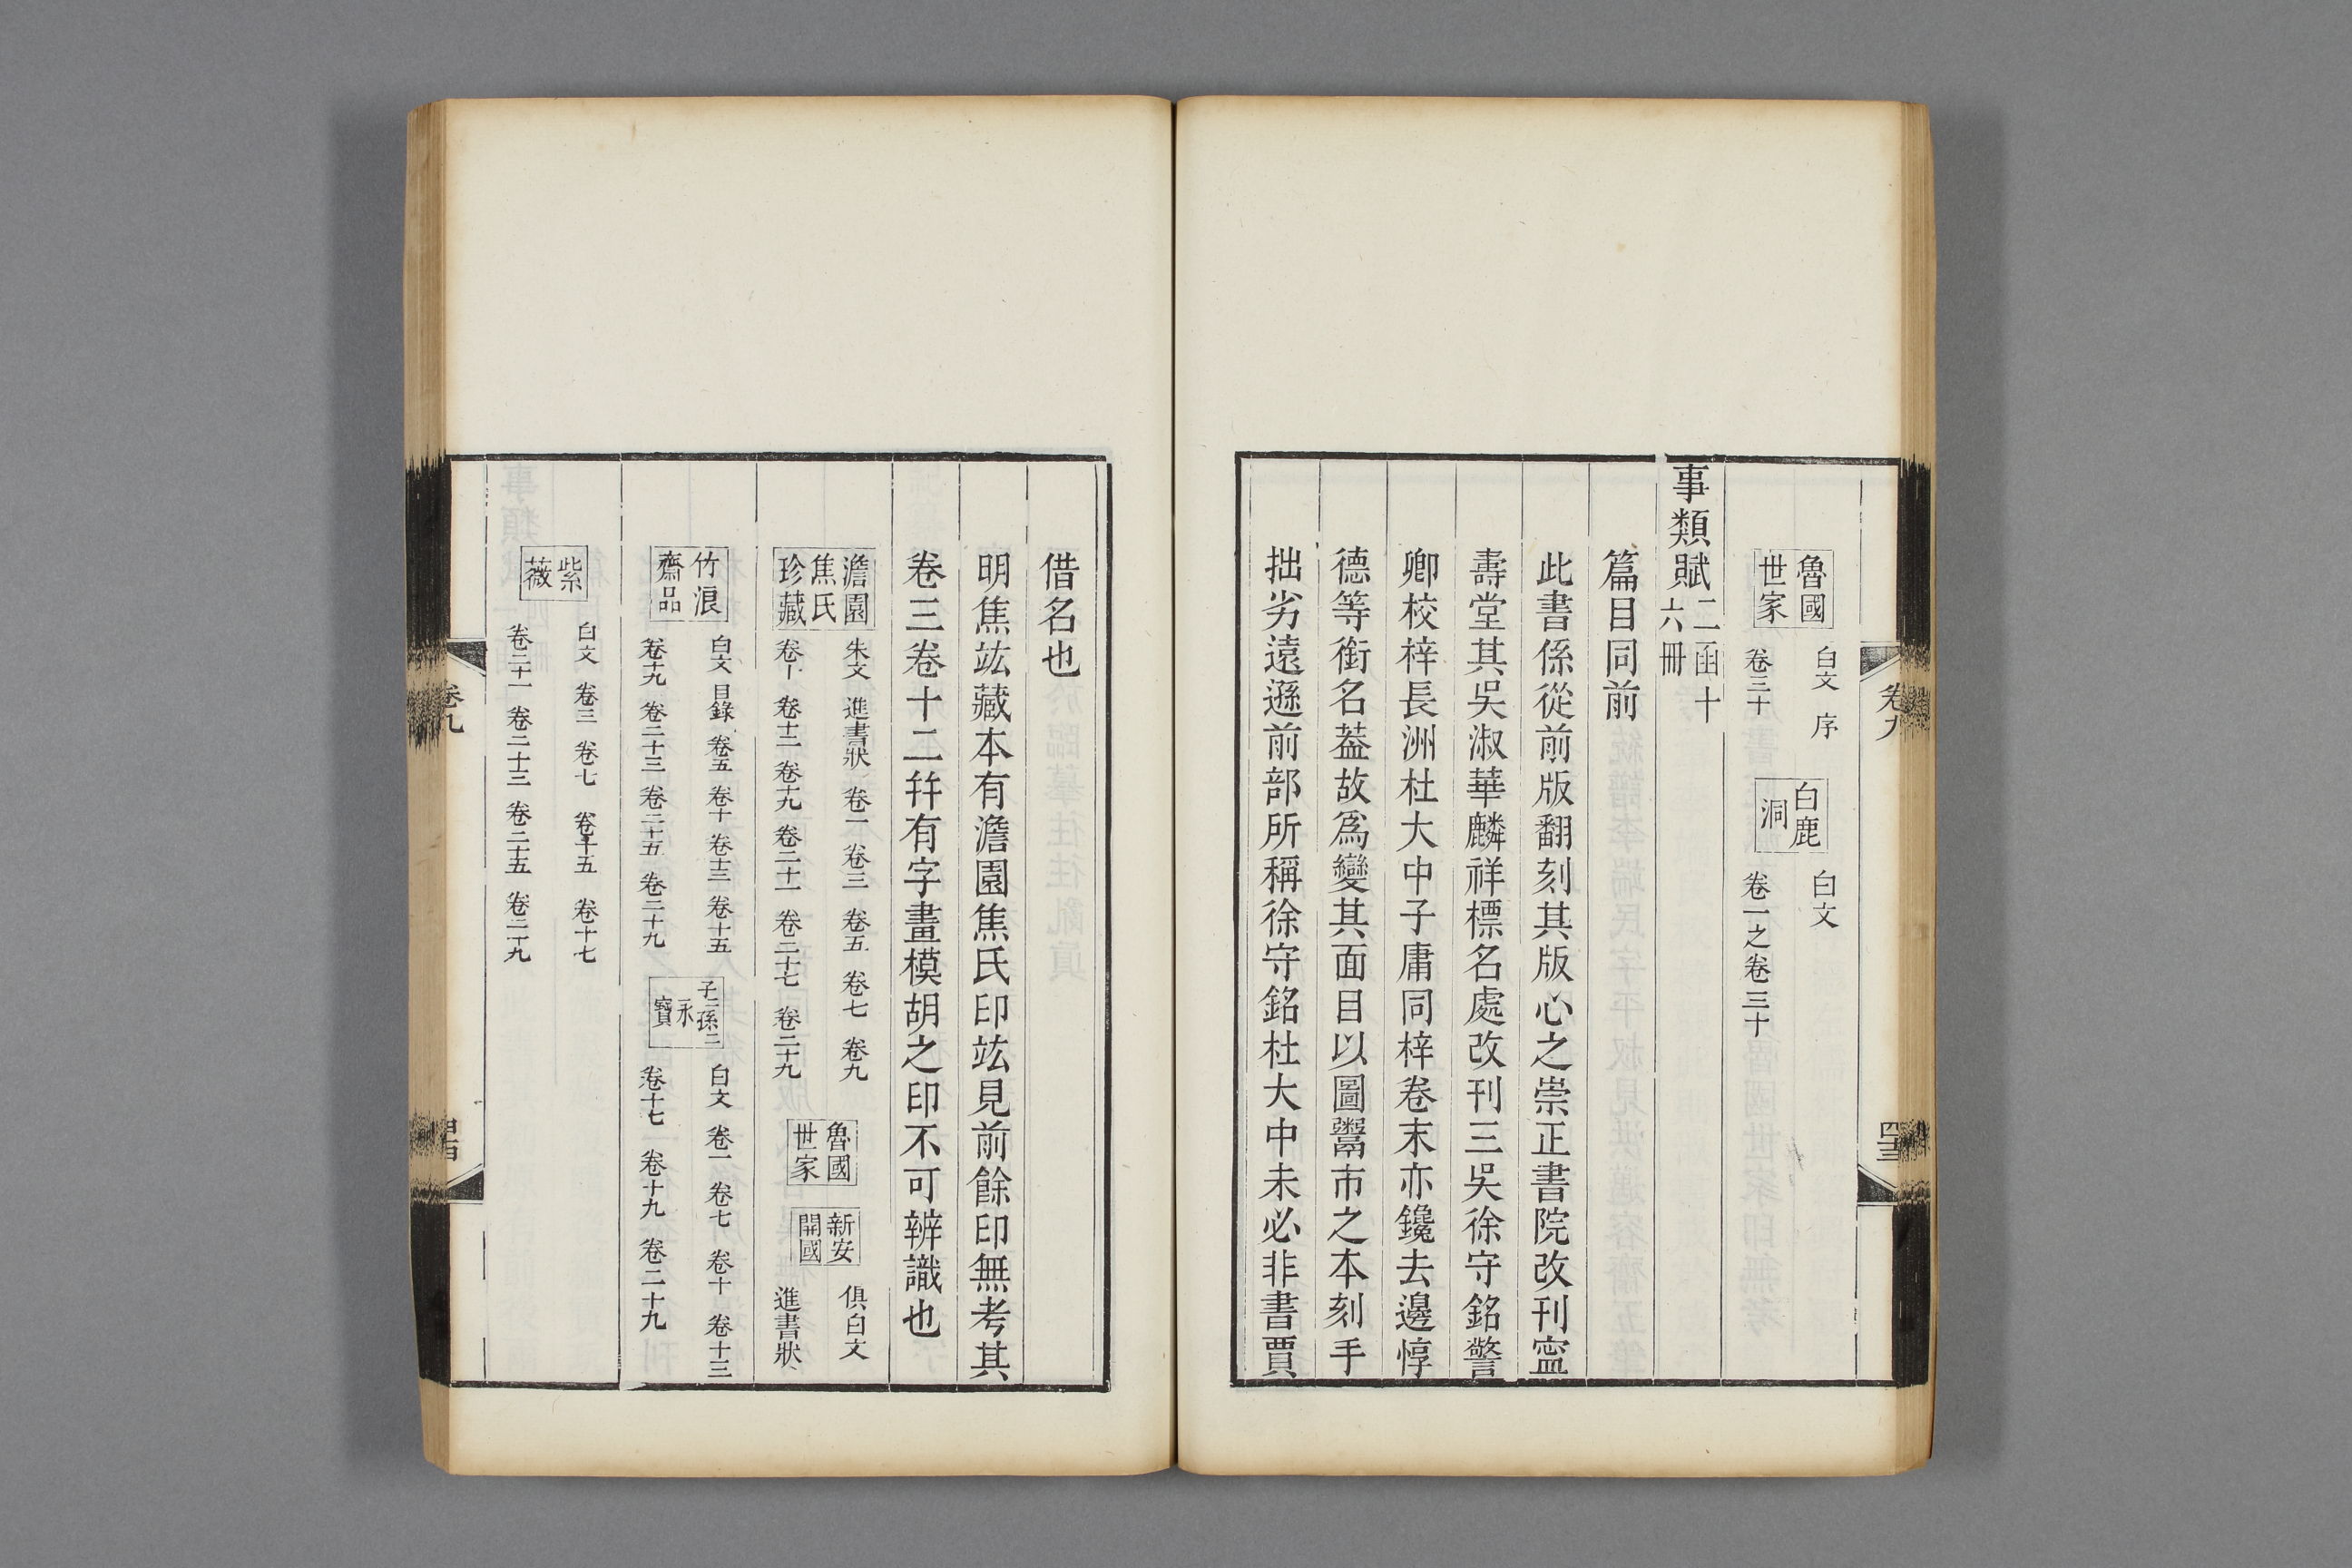 魯國
世家
白文 序
卷三十
白鹿
洞
白文
卷一之卷三十
事類賦二函十
六冊
篇目同前
此書係從前版翻刻其版心之崇正書院改刊寍
壽堂其吳淑華麟祥標名處改刊三吳徐守銘警
卿校梓長洲杜大中子庸同梓卷末亦鑱去邊惇
德等銜名葢故爲變其面目以圖鬻市之本刻手
拙劣遠遜前部所稱徐守銘杜大中未必非書賈
卷九
借名也
明焦竑藏本有澹園焦氏印竑見前餘印無考其
卷三卷十二幷有字畫模胡之印不可辨識也
澹園
焦氏
珍藏
朱文 進書狀 卷一 卷三 卷五 卷七 卷九
卷十二 卷十九 卷二十一 卷二十七 卷二十九
魯國
世家
新安
開國
俱白文
進書狀
竹浪
齋品
白文 目錄 卷五 卷十 卷十三 卷十五
卷十九 卷二十三 卷二十五 卷二十九
子二孫二
永
寶
白文 卷一 卷七 卷十 卷十三
卷十七 卷十九 卷二十九
紫
薇
白文 卷三 卷七 卷十五 卷十七
卷二十一 卷二十三 卷二十五 卷二十九
卷九